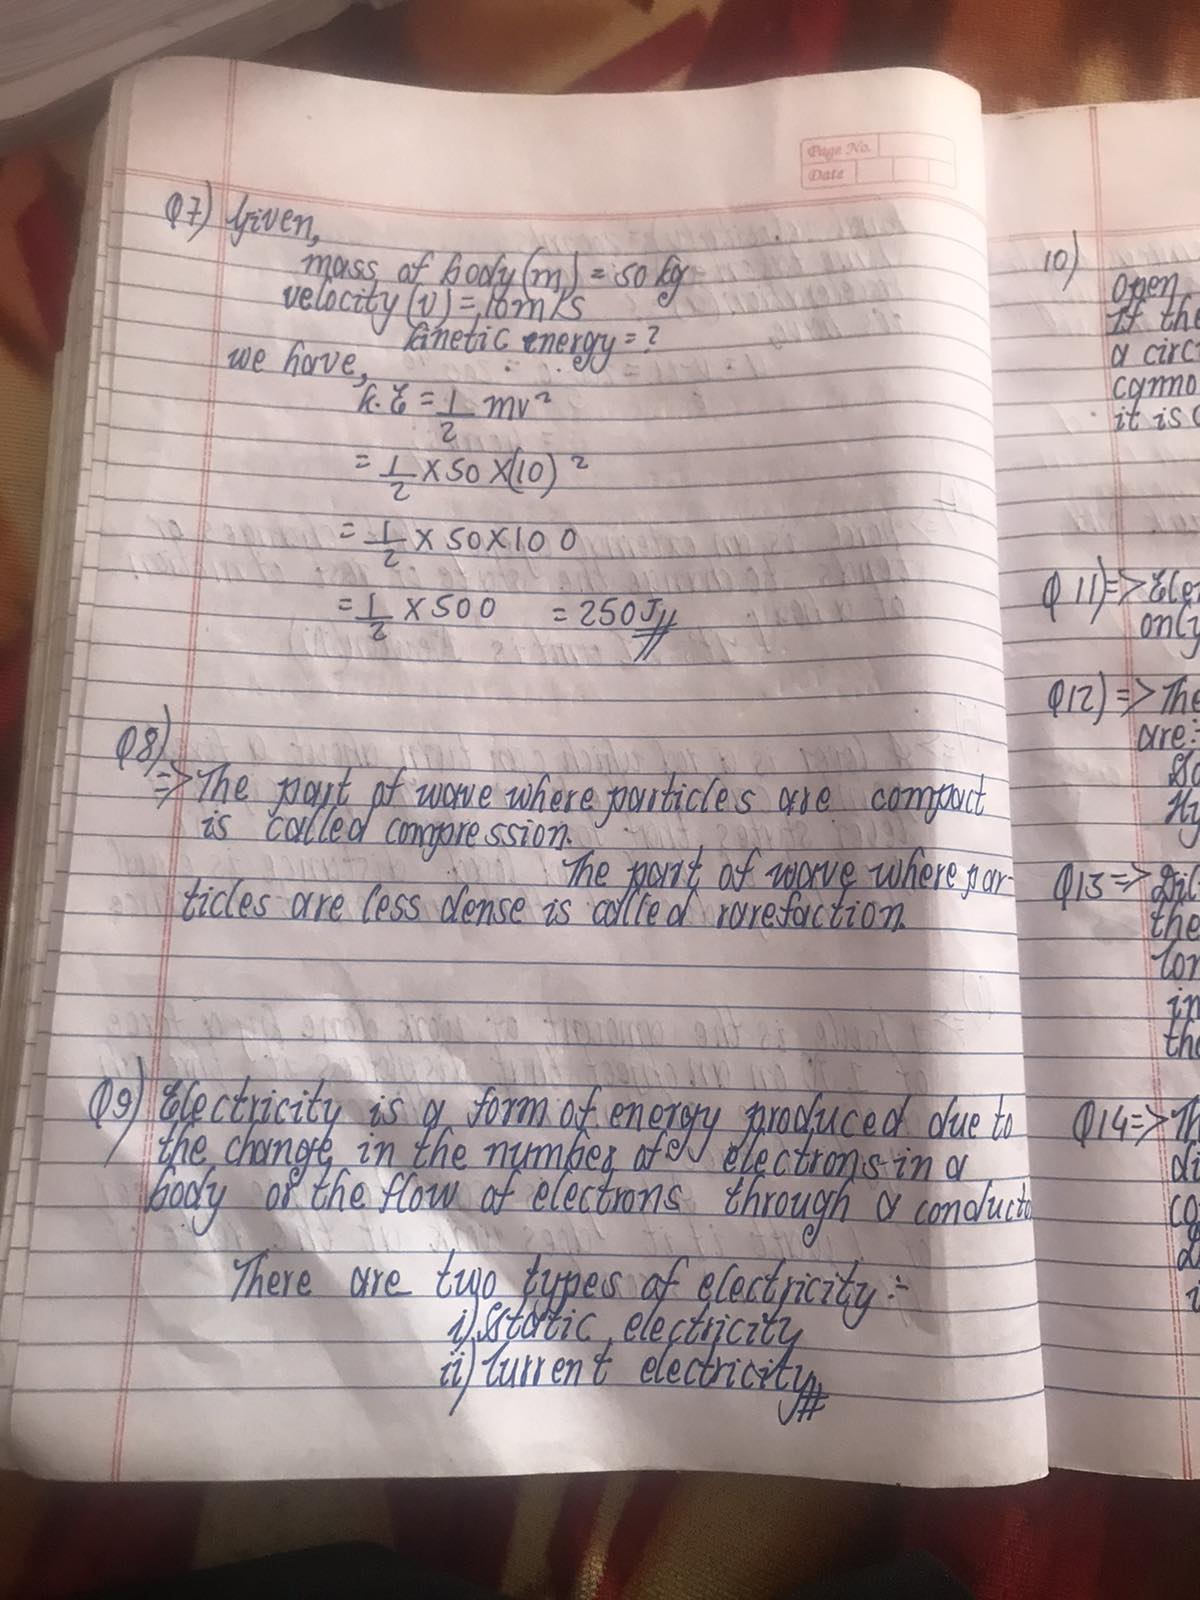 Page No.
Date
Q7) Given,
mass of body (m) = 50 kg
velocity (v) = 10 m/s
kinetic energy = ?
we have,
K.E = 1/2 mv²
= 1/2 × 50 × (10)²
= 1/2 × 50 × 100
= 1/2 × 500 = 250J
Q8)
=> The part of wave where particles are compact
is called compression.
The part of wave where par-
ticles are less dense is called rarefaction.
Q9) Electricity is a form of energy produced due to
the change in the number of electrons in a
body or the flow of electrons through a conducto
There are two types of electricity :-
i) Static electricity
ii) Current electricity
10)
open
If the
a circ
canno
it is
Q 11) => Elec
only
Q12) => The
are :-
Q13 =>
the
in
the
Q14 => Th
di
co